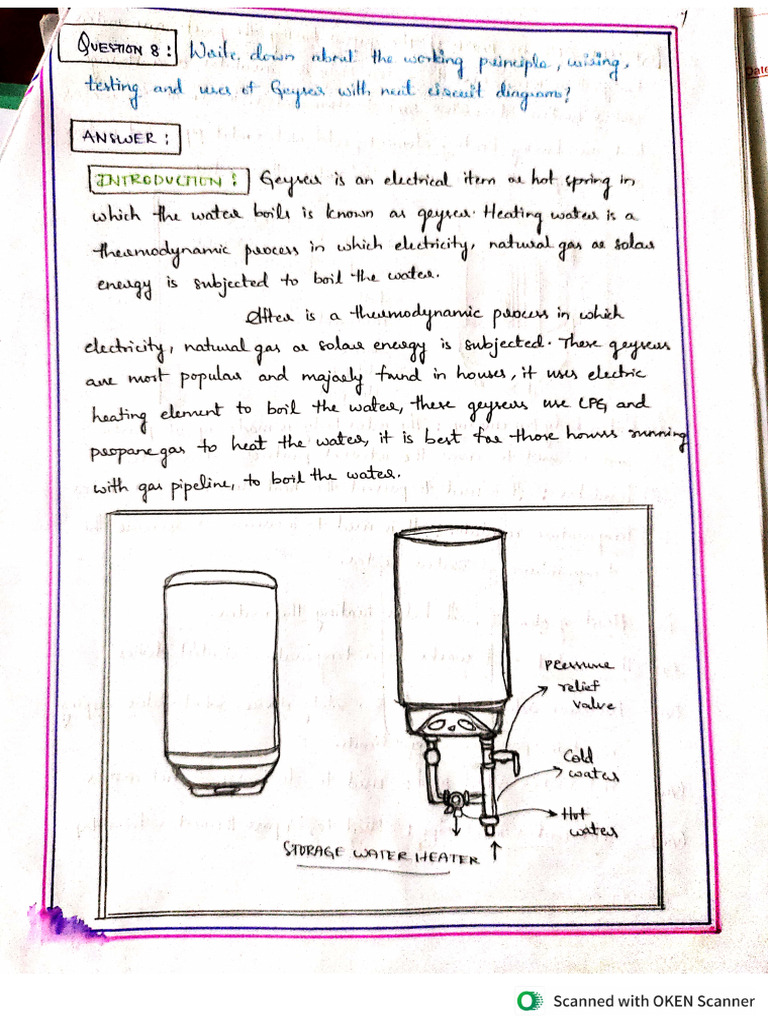 QUESTION 8: Write down about the working principle, wiring,
testing and uses of Geyser with neat circuit diagrams?
ANSWER:
INTRODUCTION: Geyser is an electrical item or hot spring in
which the water boils is known as geyser. Heating water is a
thermodynamic process in which electricity, natural gas or solar
energy is subjected to boil the water.
is a thermodynamic process in which
electricity, natural gas or solar energy is subjected. These geysers
are most popular and majorly found in houses, it uses electric
heating element to boil the water, these geysers use LPG and
propane gas to heat the water, it is best for those houses running
with gas pipeline, to boil the water.
Pressure
relief
valve
Cold
water
Hot
water
STORAGE WATER HEATER
Date
Scanned with OKEN Scanner